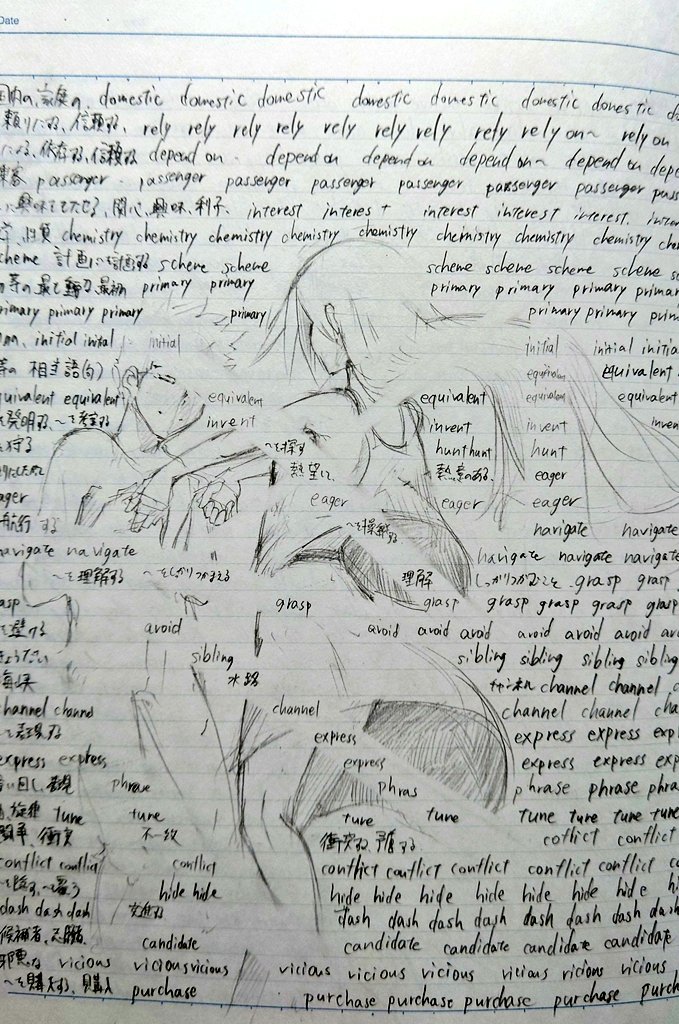 Date
domestic domestic domestic domestic domestic domestic domestic
頼りにする、信頼する、 rely rely rely rely rely rely rely rely rely on~ rely on
依存する、信頼する depend on depend on depend on depend on~ depend on
passenger passenger passenger passenger passenger passenger passenger
興味をもたせる、関心、興味、利子、 interest interest interest interest interest.
chemistry chemistry chemistry chemistry chemistry chemistry chemistry chemistry
scheme 計画 scheme scheme scheme scheme scheme scheme
primary primary primary primary primary
primary primary primary primary primary primary
initial inital initial initial initial
相当語(句)
equivalent equivalent equivalent equivalent equivalent equivalent equivalent equivalent
invent invent invent
狩る ~を探す hunt hunt hunt
熱望して、 熱意のある、 eager
eager eager eager eager
航行する ~を操縦する navigate navigate
navigate navigate navigate navigate navigate
~を理解する ~をしっかりつかまえる 理解 しっかりつかむこと grasp grasp
grasp grasp grasp grasp grasp grasp grasp
避ける avoid avoid avoid avoid avoid avoid avoid
きょうだい sibling sibling sibling sibling sibling
海峡 水路 channel channel
channel channel channel channel channel
~を表現する express express express
express express express express express
言い回し、表現 phrase phras phrase phrase
旋律 tune tune tune tune tune tune tune tune
衝突 不一致 衝突する、 cotflict conflict
conflict conflict conflict conflict conflict conflict conflict conflict
hide hide hide hide hide hide hide hide hide
dash dash dash 突進する dash dash dash dash dash dash dash dash
候補者、志願 candidate candidate candidate candidate candidate
邪悪な vicious vicious vicious vicious vicious vicious vicious vicious vicious
~を購入する、購入 purchase purchase purchase purchase purchase